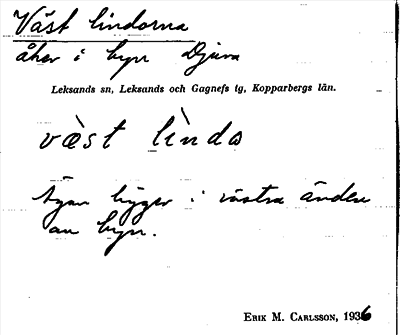 Väst lindorna
åker i byn Djura
Leksands sn, Leksands och Gagnefs tg, Kopparbergs län.
væ̀st lìndo
Ägan ligger i västra änden
av byn.
ERIK M. CARLSSON, 1936